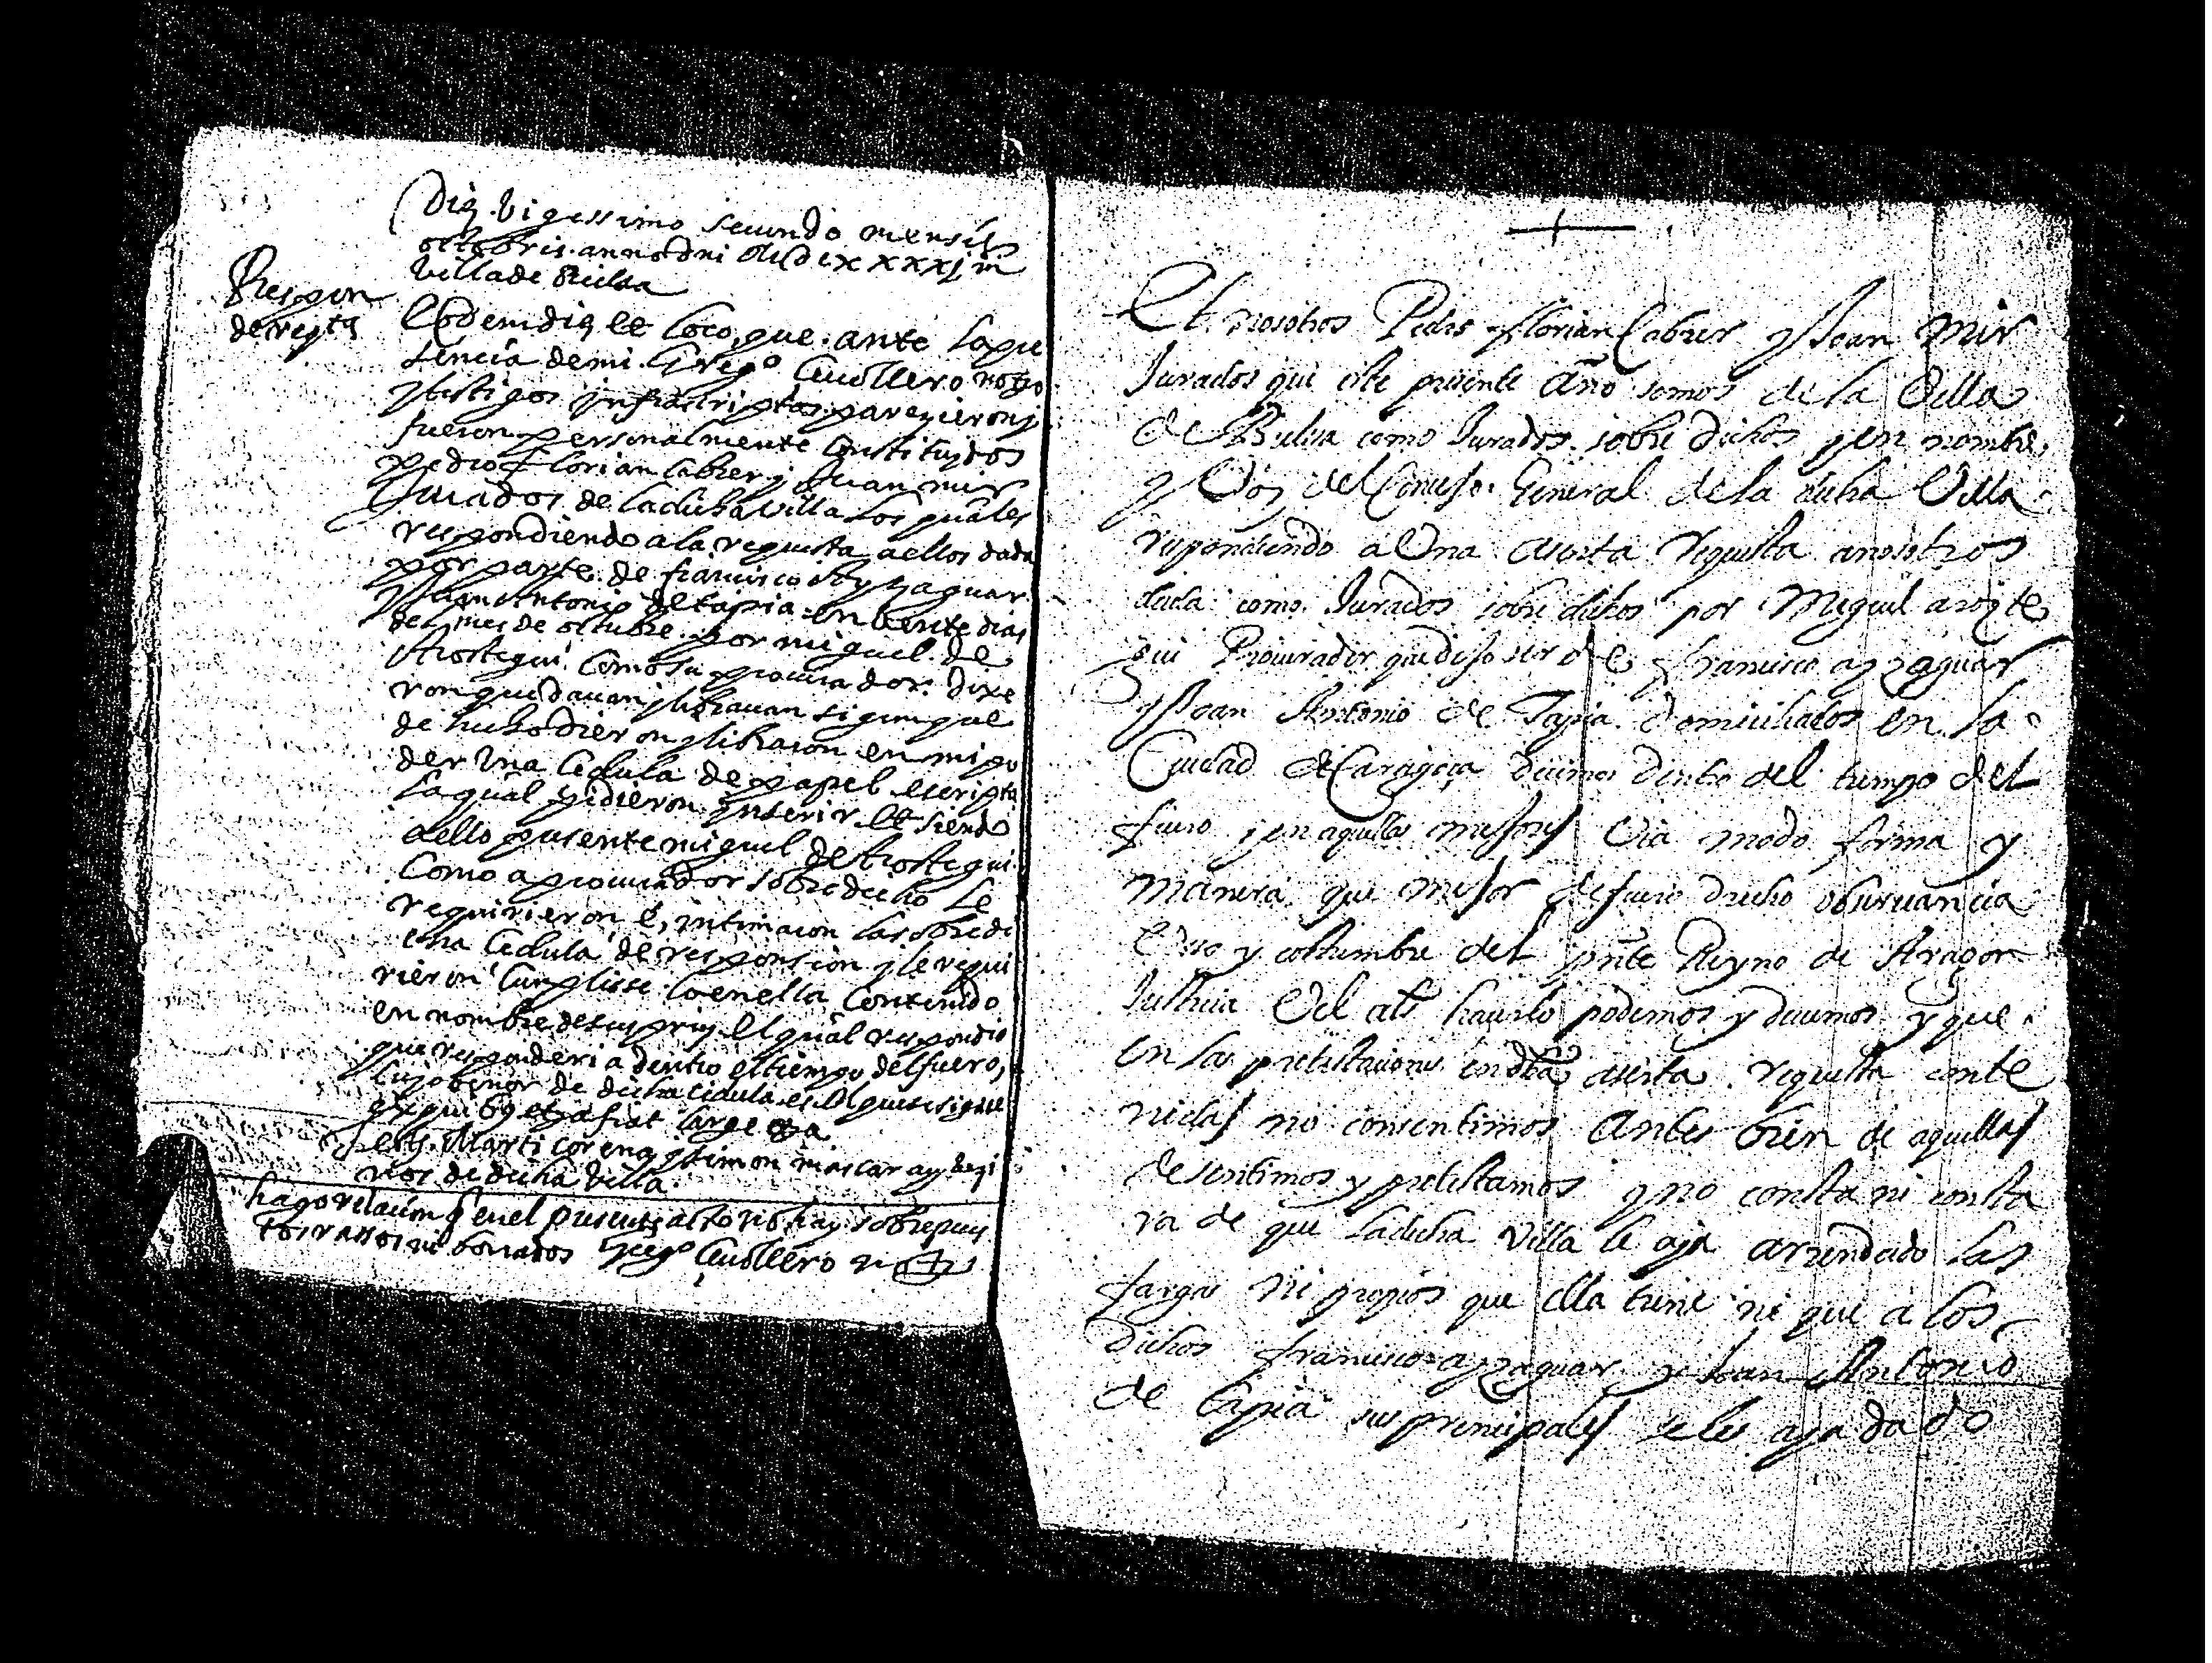 Die vigessimo secundo mensis
octobris anno dni MDLxxxxj in
Villa de Bielsa
Respon
de reqta
Eodem die et loco que ante la pre
sencia de mi Grego Cavallero noto
y testigos infrascriptos parezieron y
fueron personalmente constituydos
pedro Florian Cabrer y Juan mir
Jurados de la dicha Villa los quales
respondiendo a la requesta a ellos dada
por parte de francisco Ayzaguar
y Juan Antonio de tapia en vente dias
del mes de octubre por miguel de
Arostegui como su procurador dixe
ron que davan y libravan sigun que
de hecho dieron y libraron en mi po
der una cedula de papel escripta
la qual pidieron inserir et siendo
a ello presente miguel de Arostegui
como a procurador sobredicho le
requirieron e, intimaron la sobredi
cha cedula de responsion y le requi
rieron cumpliese lo en ella contenido
en nombre de sus prin. el qual respondio
que responderia dentro el tiempo del fuero,
cuyo tenor de dicha cedula es el que se sigue
ex quibus et fiat large
Testes Marti corena y simon mascaray vezi
nos de dicha villa.
hago relacion q en el presente acto no hay sobrepues
tos rassos ni borrados Grego Cavallero no
Et nosotros Pedro Florian Cabrer y Joan Mir
Jurados que este presente año somos de la Villa
de Bielsa como Jurados sobre dichos y en nombre
y Voz del Consejo General de la dicha Villa
respondiendo a Una aserta requesta a nosotros
dada como Jurados sobre dichos por Miguel arozte
gui Procurador que dijo ser de francisco ayzaguar
y Joan Antonio de Tapia domiciliados en la
Ciudad de Caragoça decimos dentro del tiempo del
fuero y en aquellas mejores Via modo forma y
manera que mejor de fuero drecho observancia
Uso y costumbre del pnte Reyno de Aragon
Justicia Vel als hacerlo podemos y devemos y que
en las protestaciones en dta aserta requesta conte
nidas no consentimos Antes bien de aquellas
desentimos y protestamos y no consta ni consta
ra de que la dicha Villa le aja arrendado las
fargas ni propios que ella tiene ni que a los
dichos francisco ayzaguar y Joan Antonio
de tapia sus principales se les aja dado